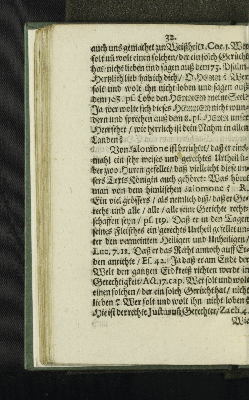 32.
auch uns gemachet zur Weißheit 1. Cor. 1. Wer
solt nū wolt einen solchen/ der ein solch Gericht
hat/ nicht lieben und sagen auß dem 73. Psalm
Hertzlich lieb hab ich dich/ O HERR! Wer
solt und wolt ihn nicht loben und sagen auß
dem 103. pl. Lobe den HERREN meine Seele
Ja wer wolte sich dieses HERREN nicht wun-
dern und sprechen auß dem 8. pl. HERR unser
Herrscher/ wie herrlich ist dein Nahm in allen
Landen?
Von Salomone ist berichtet/ daß er eins-
mahl ein sehr weises und gerechtes Urtheil in-
der 700 Huren gefellet/ daß vielleicht diese un-
sers Texts Königin auch gehöret: Was höret
man von dem himlischen salomone? R.
Ein viel grössers/ als nemlich diß/ daß er Ge-
recht und alle/ alle/ alle seine Gerichte recht-
schaffen seyn/ pl. 119. Daß er in den Tagen
seines Fleisches ein gerechtes Urtheil gefellet un-
ter den vermeinten Heiligen und Unheiligen/
Luc. 7. 18. Daß er das Recht annoch auff Er-
den anrichte/ Es. 42. Ja daß er am Ende der
Welt den gantzen Erdkreiß richten werde in
Gerechtigkeit/ Act. 17. cap. Wer solt und wolt
einen solchen/ der ein solch Gericht hat/ nicht
lieben? Wer solt und wolt ihn nicht loben?
Hie ist der rechte Justinus, Gerechter/ Zach. 4.
Wie